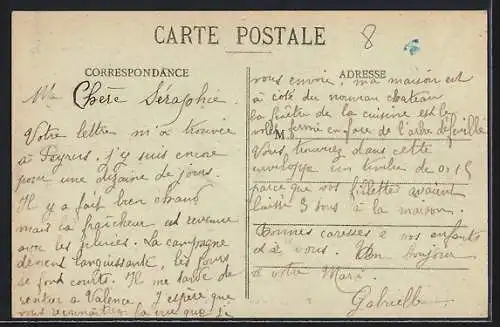 CARTE POSTALE
8
CORRESPONDANCE
ADRESSE
Ma Chère Séraphie.
Votre lettre m'a trouvée
à Peyrus, j'y suis encore
pour une dizaine de jours.
Il y a fait bien chaud
mais la fraîcheur est revenue
avec les pluies. La campagne
devient languissante, les jours
se font courts. Il me tarde de
rentrer à Valence. J'espère que
vous reconnaîtrez la vue que je
vous envoie, ma maison est
à côté du nouveau chateau
la fenêtre de la cuisine est le
volet fermé en face de l'arbre
M
Vous trouverez dans cette
enveloppe un timbre de 0,15
parce que vos fillettes avaient
laissé 3 sous à la maison.
Bonnes caresses à vos enfants
et à vous. Bonjour
à votre Mari.
Gabrielle